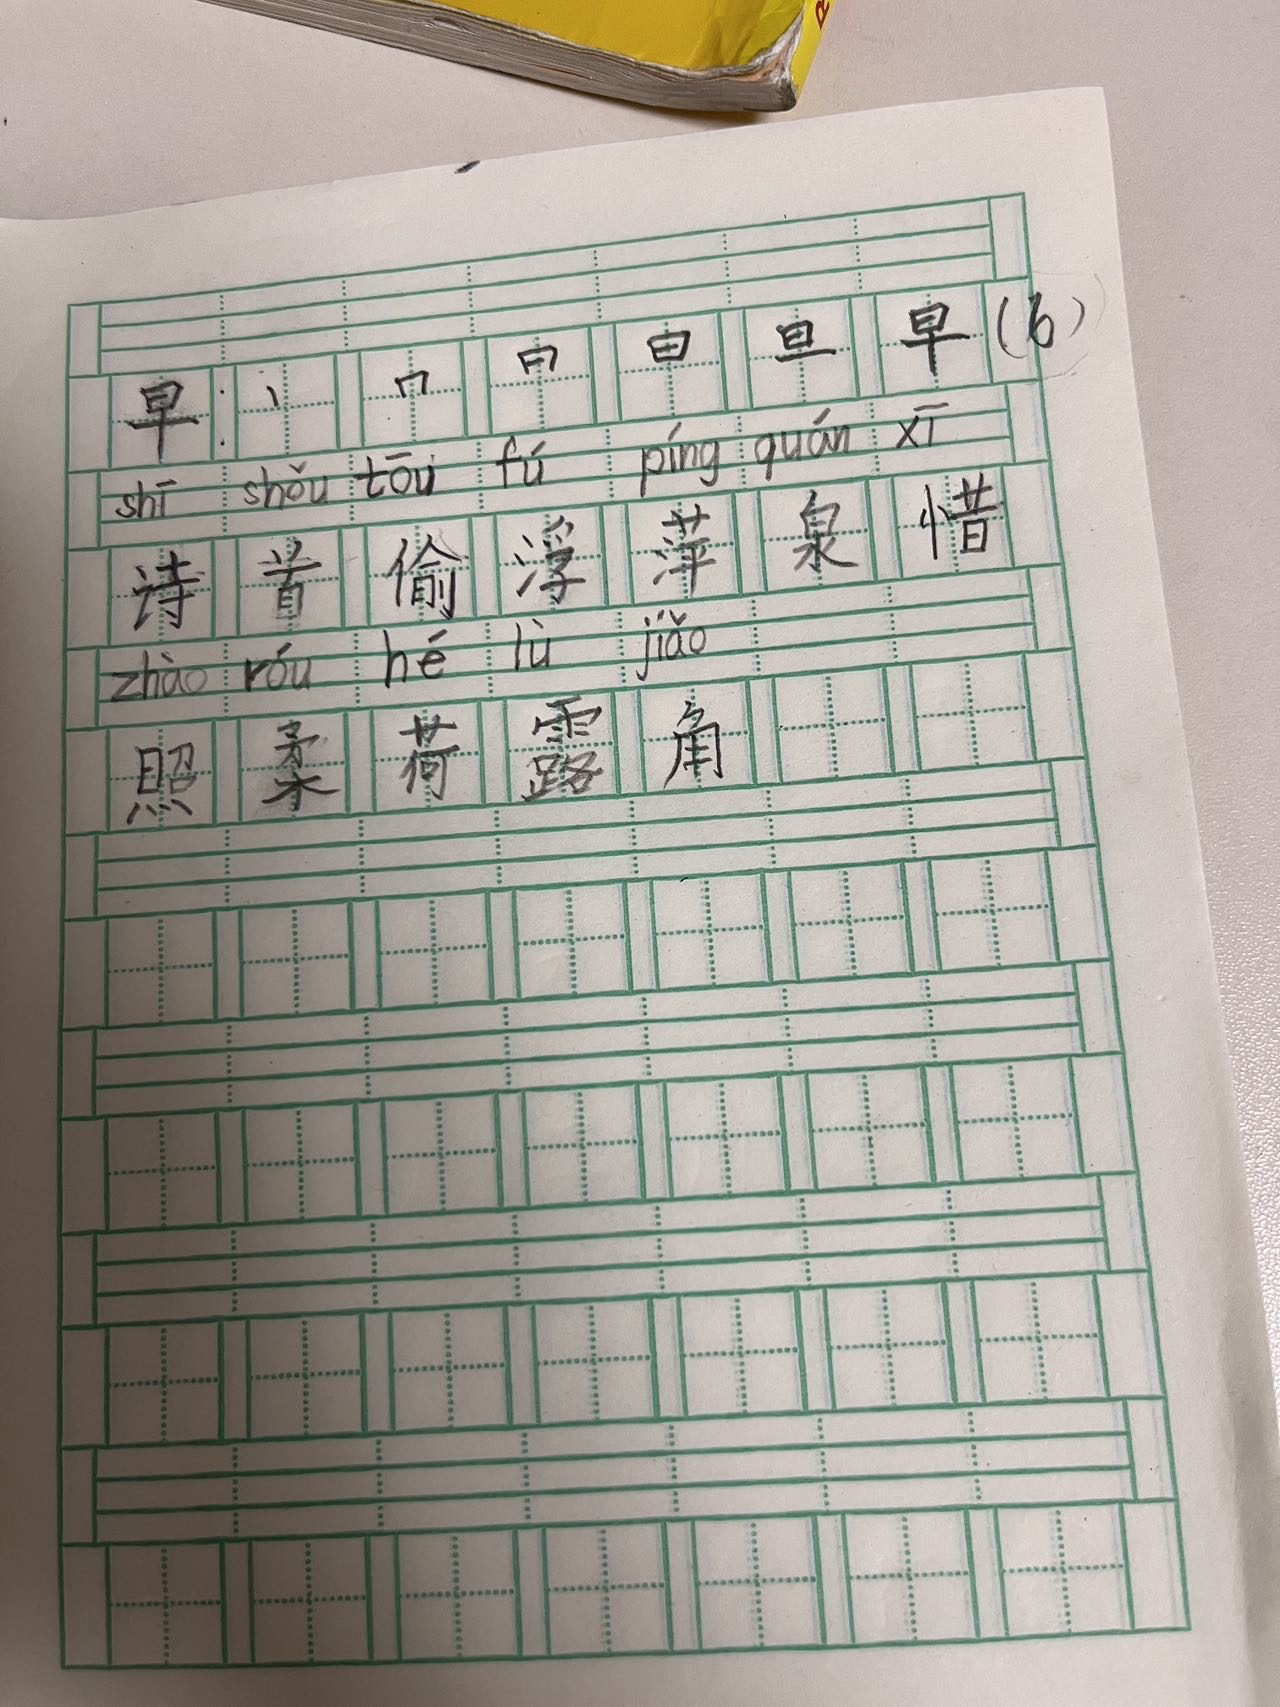 早:丶 𠃍 日 日 旦 早 (6)
shī shǒu tōu fú píng quán xī
诗 首 偷 浮 萍 泉 惜
zhào róu hé lù jiǎo
照 柔 荷 露 角